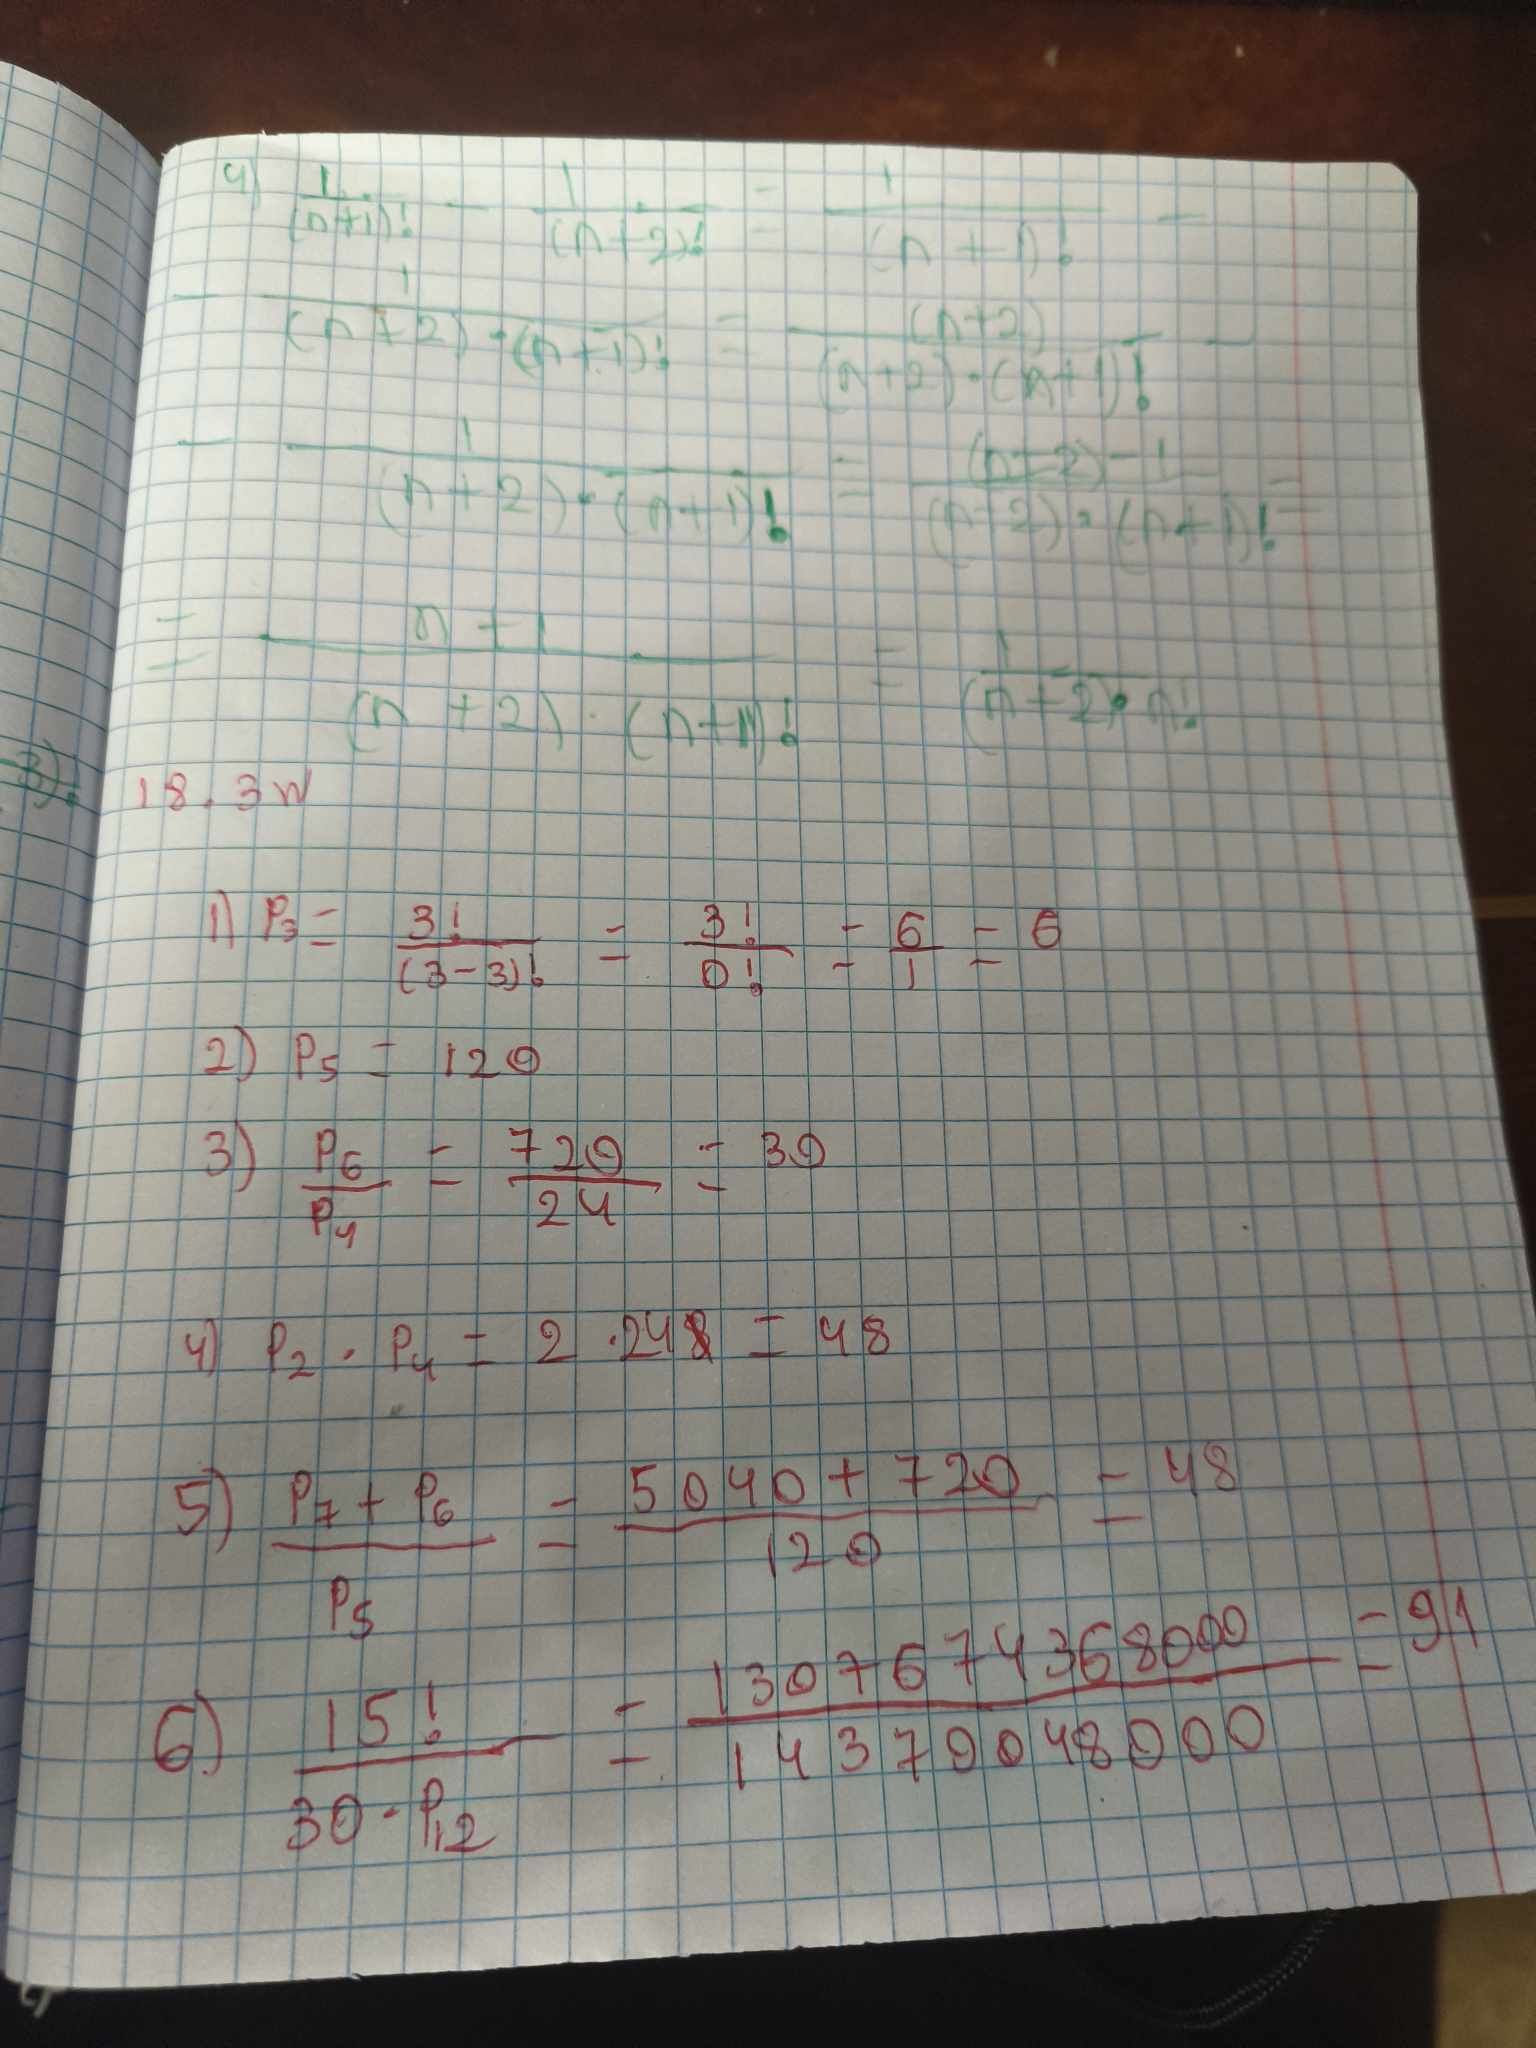 4) 1/(n+1)! - 1/(n+2)! = 1/(n+1)! -
- 1/((n+2)·(n+1)!) = (n+2)/((n+2)·(n+1)!) -
- 1/((n+2)·(n+1)!) = ((n+2)-1)/((n+2)·(n+1)!) =
= (n+1)/((n+2)·(n+1)!) = 1/((n+2)·n!)
3)!
18.3 N
1) P₃ = 3!/(3-3)! = 3!/0! = 6/1 = 6
2) P₅ = 120
3) P₆/P₄ = 720/24 = 30
4) P₂ · P₄ = 2 · 24 = 48
5) (P₇ + P₆)/P₅ = (5040 + 720)/120 = 48
6) 15!/(30 · P₁₂) = 1307674368000/14370048000 = 91